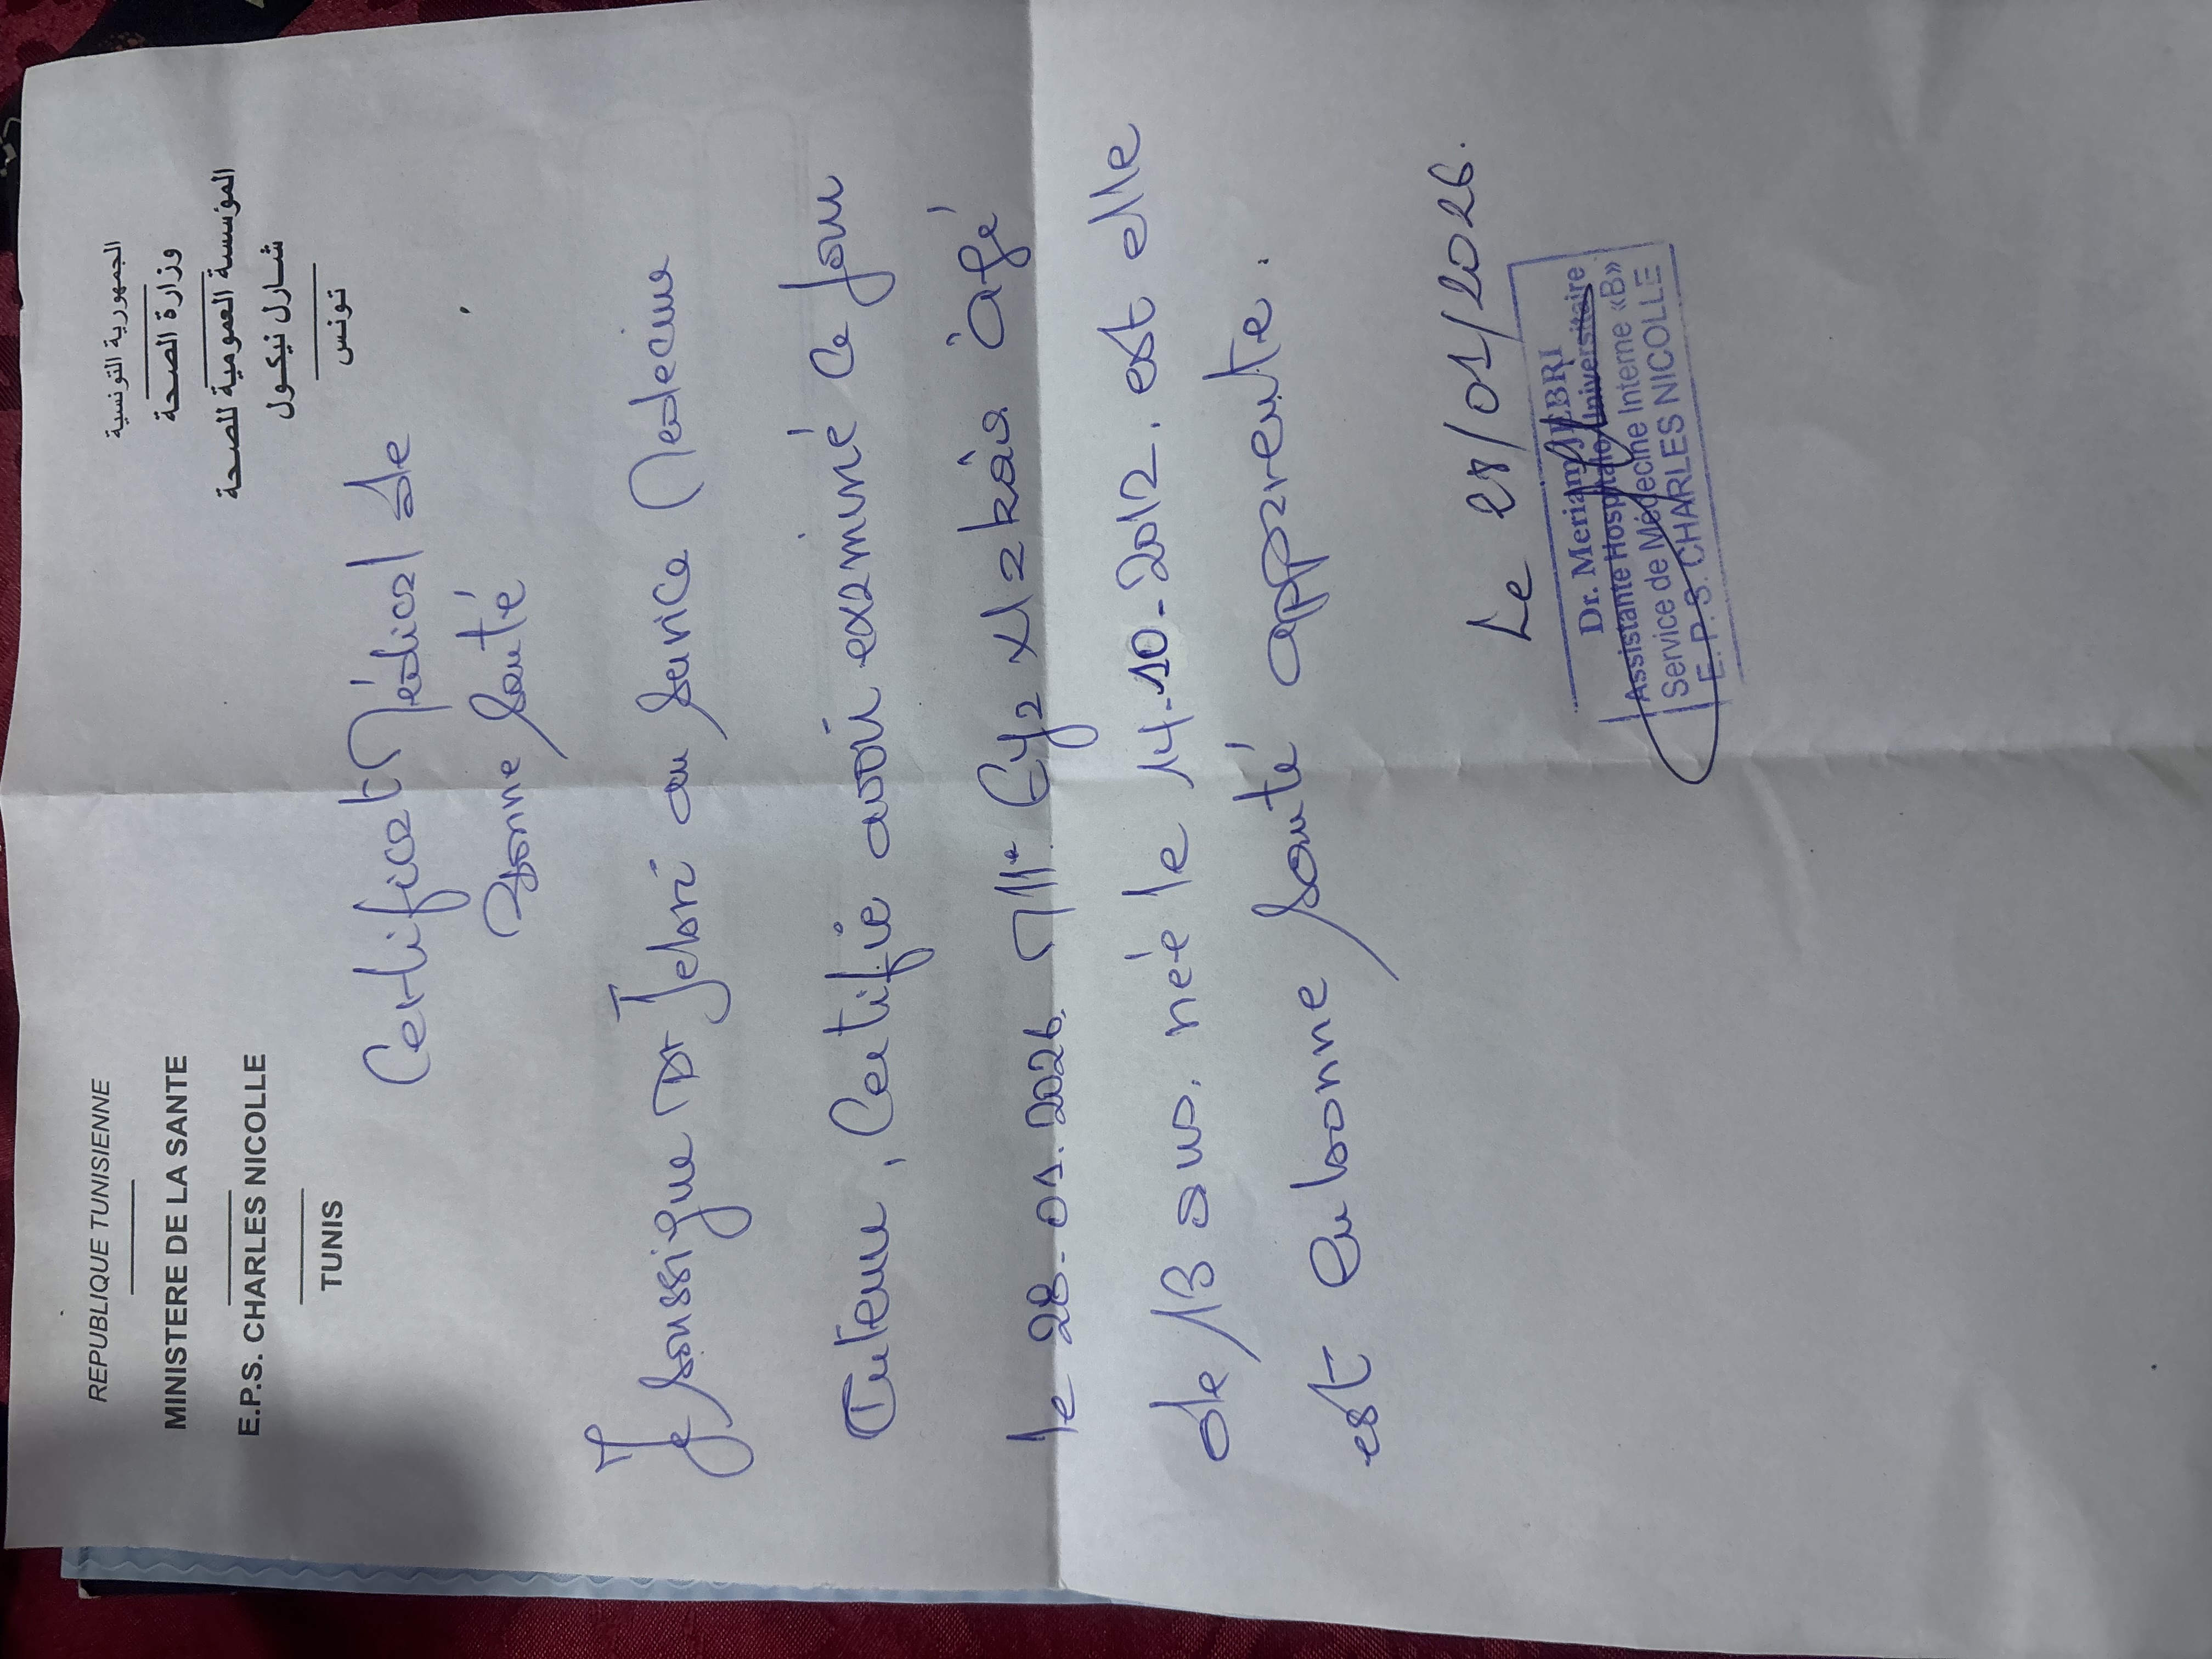 REPUBLIQUE TUNISIENNE
MINISTERE DE LA SANTE
E.P.S. CHARLES NICOLLE
TUNIS
الجمهورية التونسية
وزارة الصحة
المؤسسة العمومية للصحة
شارل نيكول
تونس
Certificat Médical de
Bonne Santé
Je soussigne Dr Jebri au service Medecine
Interne, Certifie avoir examiné ce jour
le 28-01.2026. Mlle âgé
de 13 ans. néé le 14-10-2012. est elle
est en bonne santé apparente.
Le 28/01/2026.
Dr. Meriam JEBRI
Assistante Hospitalo Universitaire
Service de Médecine Interne «B»
E.P.S. CHARLES NICOLLE